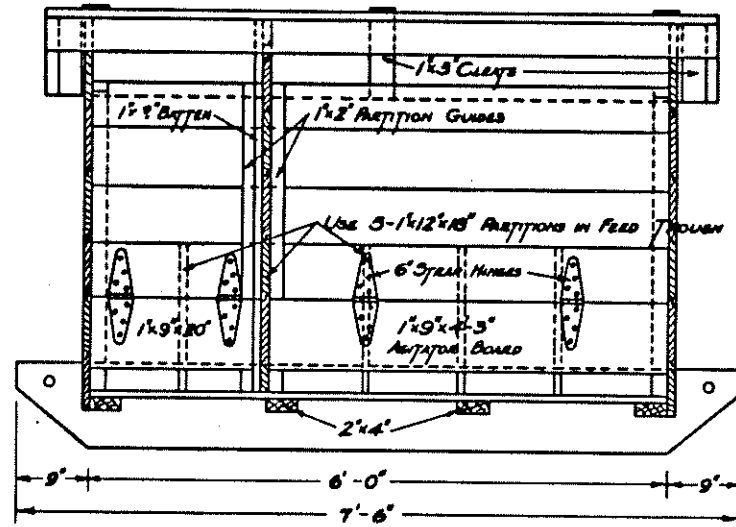 1"x3" CLEATS
1"x2" BATTEN
1"x2" PARTITION GUIDES
USE 5-1"x12"x18" PARTITIONS IN FEED TROUGH
6" STRAP HINGES
1"x9"x20"
1"x9"x4'-3"
AGITATOR BOARD
2"x4"
9"
6'-0"
9"
7'-6"